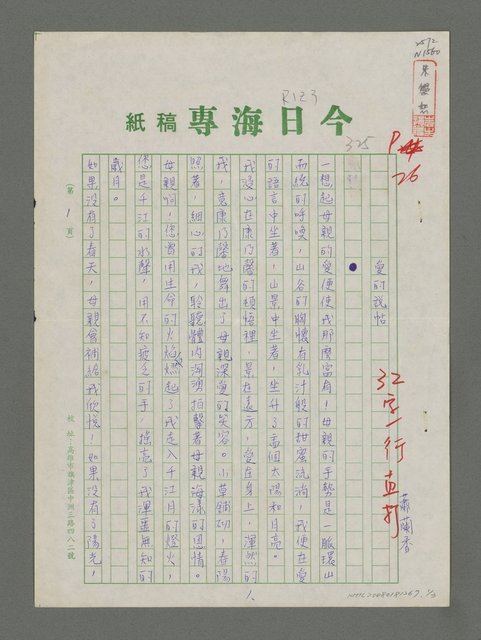 2572
N1560
R123
今日海專稿紙
325
P
26
愛的說帖
32字一行直打
蕭蘭香
一想起母親的愛便使我那麼富有，母親的手勢是一脈環山
而繞的呼喚，山谷的胸懷有乳汁般的甜蜜流淌，我便在愛
的語言中坐著，山景中坐著，坐升了兩個太陽和月亮。
我沒心在康乃馨的頓悟裡，景在遠方，愛在身上，渾然的
我，意康乃馨地舞出了母親深愛的笑容。小草鋪砌，春陽
照著，細心的我，聆聽體內洶湧拍擊著母親海漾的恩情。
母親啊！您曾用生命的火焰燃起了我走入千江月的燈火，
您是千江的水聲，用不知疲乏的手，擦亮了我渾噩無知的
歲月。
如果沒有了春天，母親會補給我欣悅！如果沒有了陽光，
(第1頁)
校址：高雄市旗津區中洲三路四八二號
NMTL20080181267. 1/3